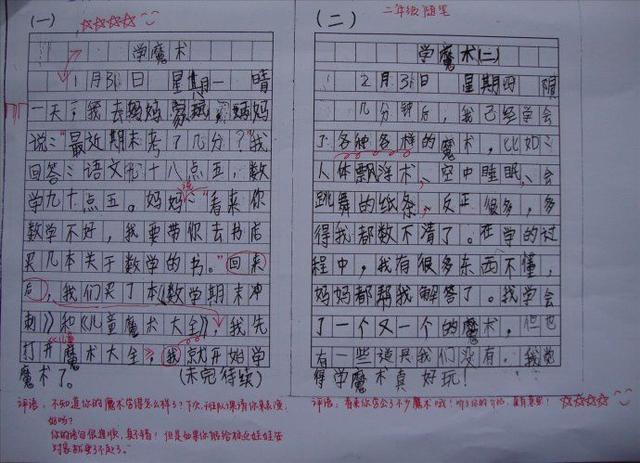 (一)
学魔术
1月31日 星期一 晴
一天，我去妈妈家,妈妈
说："最放期末考了几分？"我
回答：语文九十八点五，数
学九十点五。妈妈说："看来你
数学不好，我要带你去书店
买几本关于数学的书。"回来
后，我们买了本《数学期末冲
刺》和《儿童魔术大全》，我先
打开《儿童魔术大全》，我就开始学
魔术了。 (未完待续)
评语：不知道你的魔术学得怎么样了？下次，班队课请你来表演，
好吗？
你的语句很通顺，真不错！但是如果你能给
对象都要了不起了。
二年级 随笔
(二)
学魔术(二)
2月3日 星期四 阴
几分钟后，我已经学会
了各种各样的魔术，比如：
人体飘浮术、空中睡眠、会
跳舞的纸条、反正很多，多
得我都数不清了。在学的过
程中，我有很多东西不懂，
妈妈都帮我解答了。我学会
了一个又一个的魔术，但也
有一些道具我们没有，我觉
得学魔术真好玩！
评语：看来你学会了不少魔术哦！听了你的介绍，真有意思！